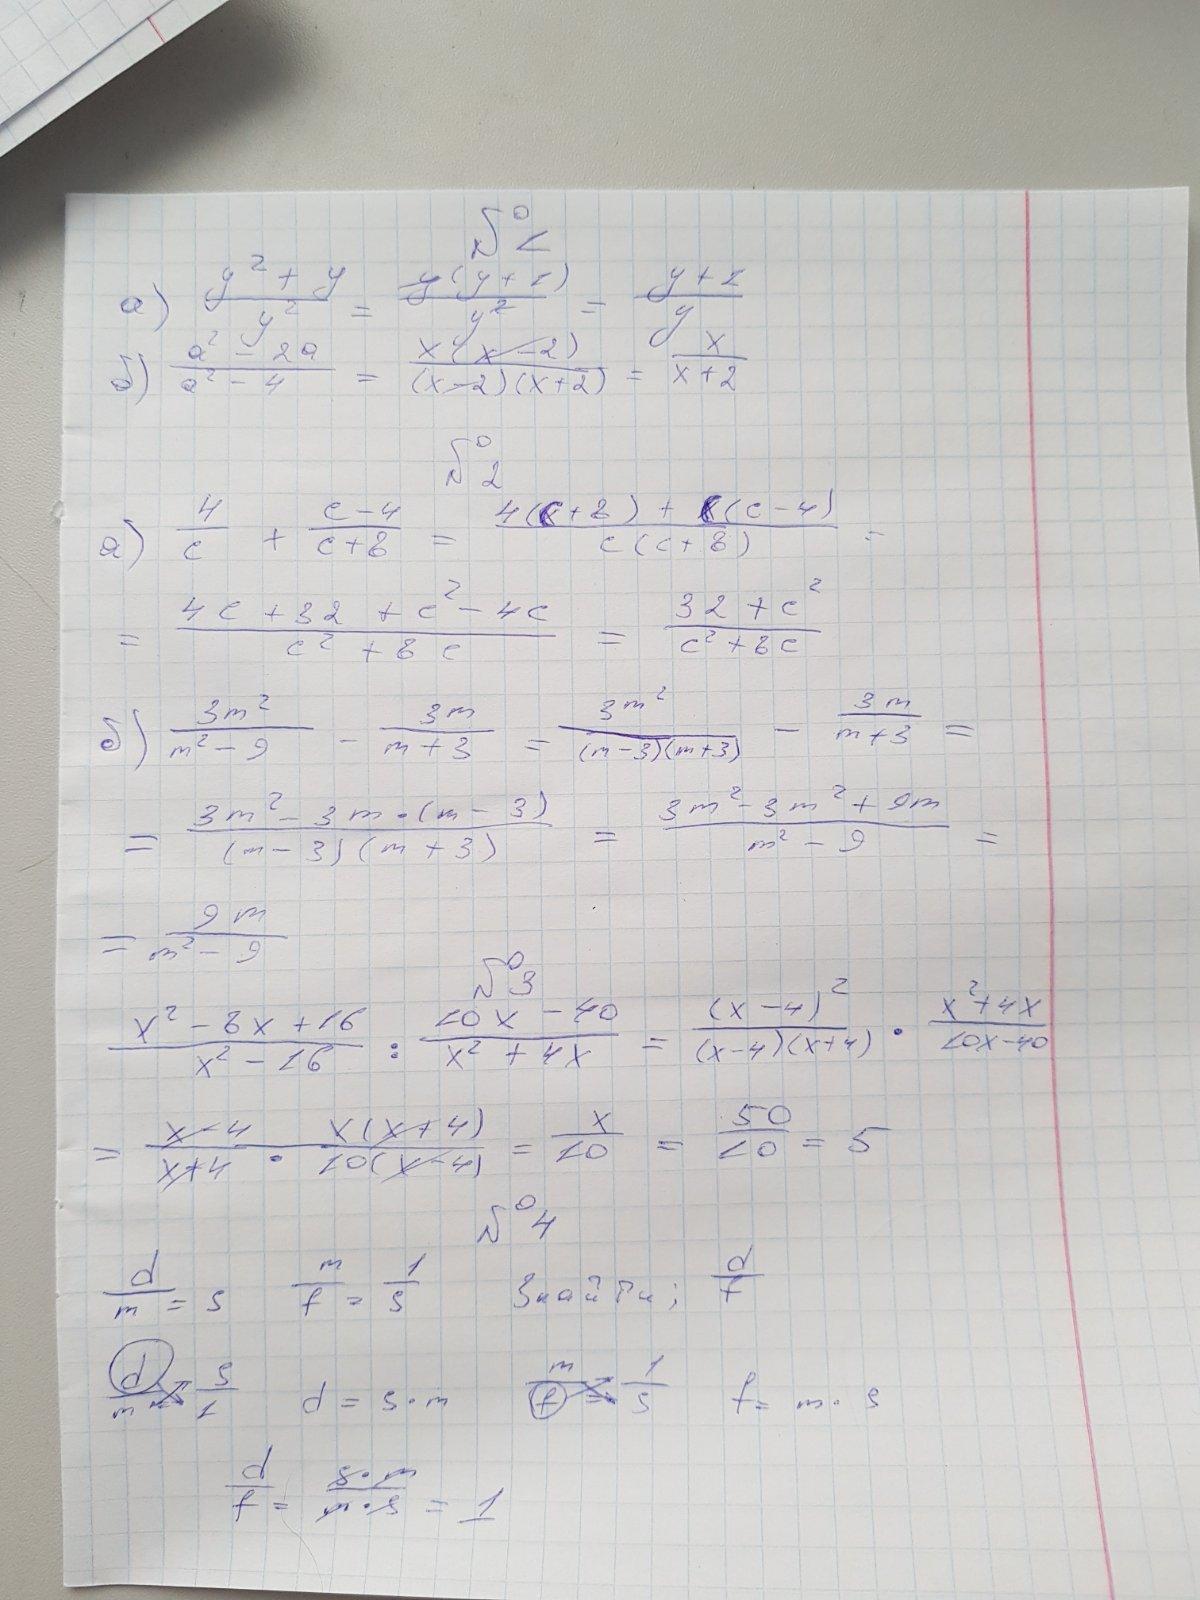 №1
а) (y² + y)/y² = y(y+1)/y² = (y+1)/y
б) (a² - 2a)/(a² - 4) = x(x-2)/((x-2)(x+2)) = x/(x+2)
№2
а) 4/c + (c-4)/(c+8) = (4(c+8) + c(c-4))/(c(c+8)) =
= (4c + 32 + c² - 4c)/(c² + 8c) = (32 + c²)/(c² + 8c)
б) 3m²/(m² - 9) - 3m/(m+3) = 3m²/((m-3)(m+3)) - 3m/(m+3) =
= (3m² - 3m·(m-3))/((m-3)(m+3)) = (3m² - 3m² + 9m)/(m² - 9) =
= 9m/(m² - 9)
№3
(x² - 8x + 16)/(x² - 16) : (10x - 40)/(x² + 4x) = (x-4)²/((x-4)(x+4)) · (x² + 4x)/(10x - 40)
= (x-4)/(x+4) · x(x+4)/(10(x-4)) = x/10 = 50/10 = 5
№4
d/m = s m/f = 1/s Знайти; d/f
d/m = s/1 d = s·m m/f = 1/s f = m·s
d/f = s·m/m·s = 1